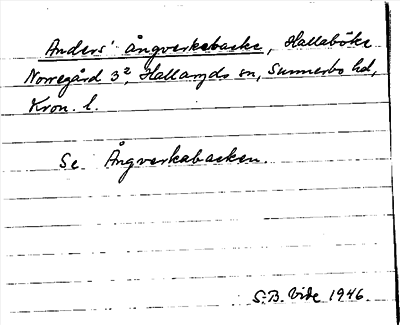 Anders' ångverksbacke, Hallaböke
Norregård 3², Hallaryds sn, Sunnerbo hd,
Kron. l.
Se Ångverksbacken.
S.B. Vide 1946.